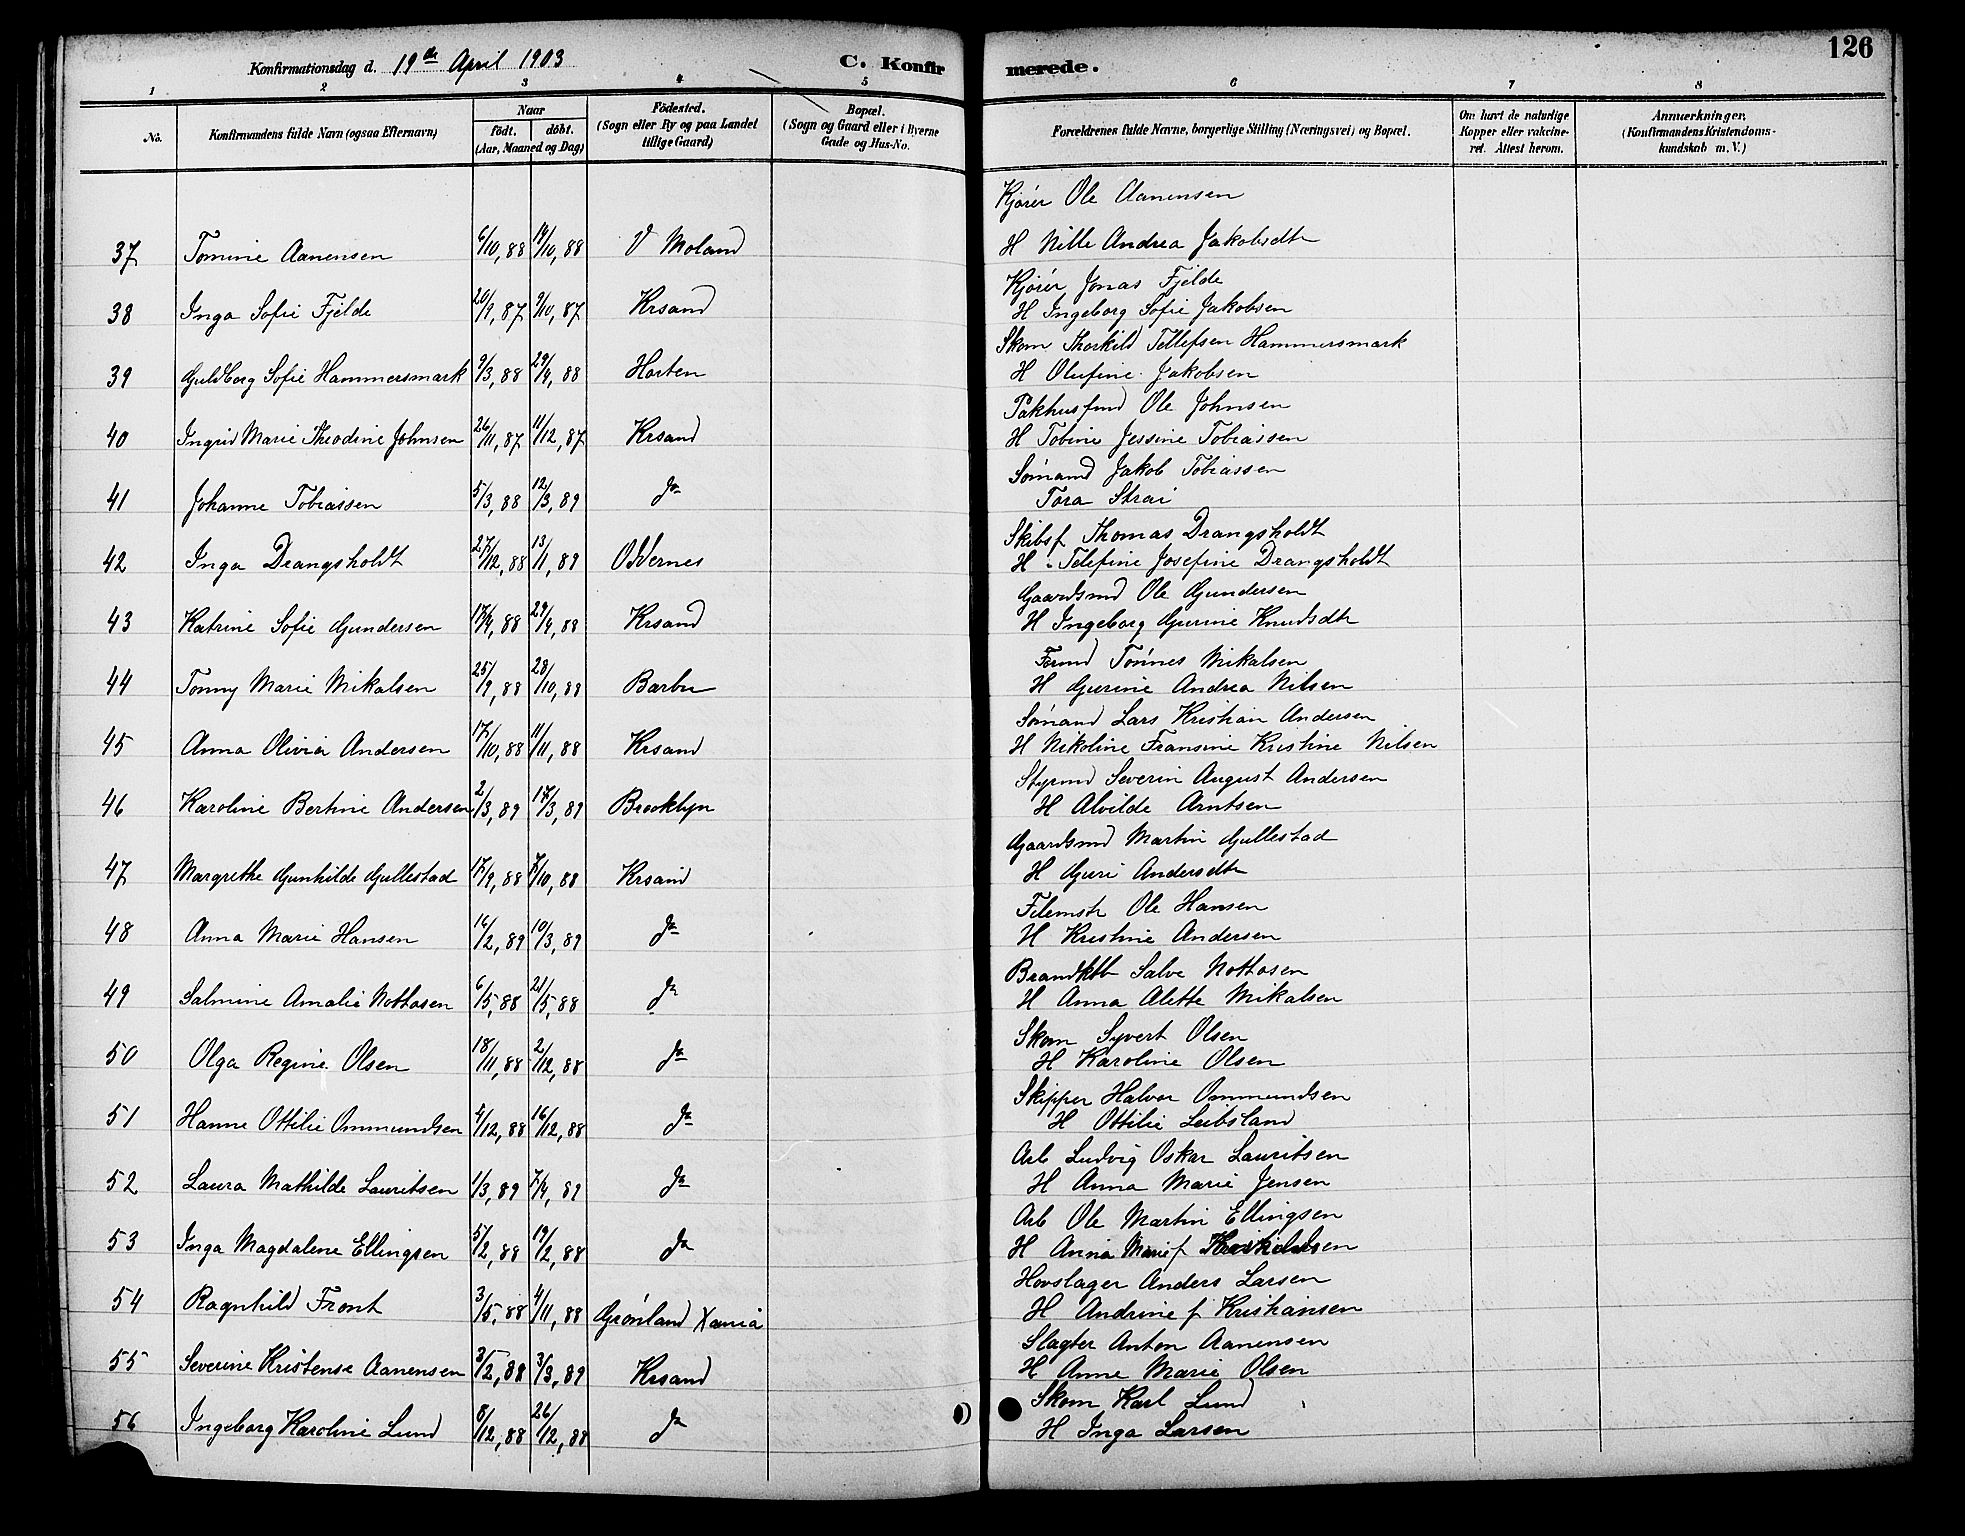 126
Konfirmationsdag d. 19de April 1903 C. Konfirmerede.
1 2 3 4 5 6 7 8
No. Konfirmandens fulde Navn (ogsaa Efternavn) Naar födt. döbt. (Aar, Maaned og Dag) Födested. (Sogn eller By og paa Landet tillige Gaard) Bopæl. (Sogn og Gaard eller i Byerne Gade og Hus-No. Forældrenes fulde Navne, borgerlige Stilling (Næringsvei) og Bopæl. Om havt de naturlige Kopper eller vakcineret. Attest herom. Anmærkninger. (Konfirmandens Kristendomskundskab m. V.)
Kjører Ole Aanensen
37 Tomine Aanensen 6/10, 88 14/10, 88 V Moland H Nille Andrea Jakobsdtr
Kjører Jonas Fjelde
38 Inga Sofie Fjelde 20/9, 87 9/10, 87 Krsand H Ingeborg Sofie Jakobsen
Skom Thorkild Tellefsen Hammersmark
39 Guldborg Sofie Hammersmark 9/3, 88 29/4, 88 Horten H Olufine Jakobsen
Pakhusfmd Ole Johnsen
40 Ingrid Marie Theodine Johnsen 26/11, 87 11/12, 87 Krsand H Tobine Jessine Tobiassen
Sømand Jakob Tobiassen
41 Johanne Tobiassen 5/3, 88 12/3, 89 do Tora Strai
Skibsf Thomas Drangsholdt
42 Inga Drangsholdt 27/12, 88 13/1, 89 Oddernes H Telefine Josefine Drangsholdt
Gaardsmd Ole Gundersen
43 Katrine Sofie Gundersen 17/4, 88 29/4, 88 Krsand H Ingeborg Gurine Knudsdtr
Tønnes Mikalsen
44 Tonny Marie Mikalsen 25/9, 88 28/10, 88 Barbu H Gurine Andrea Nilsen
Sømand Lars Kristian Andersen
45 Anna Olivia Andersen 17/10, 88 11/11, 88 Krsand H Nikoline Fransine Kristine Nilsen
Styrmd Severin August Andersen
46 Karoline Bertine Andersen 2/3, 89 17/3, 89 Brooklyn H Alvilde Arntsen
Gaardsmd Martin Gullestad
47 Margrethe Gunhilde Gullestad 17/9, 88 7/10, 88 Krsand H Guri Andersdtr
Ole Hansen
48 Anna Marie Hansen 16/2, 89 10/3, 89 do H Kristine Andersen
Brandktb Salve Nottosen
49 Salmine Amalie Nottosen 6/5, 88 21/5, 88 do H Anna Alette Mikalsen
Skom Syvert Olsen
50 Olga Regine Olsen 18/11, 88 2/12, 88 do H Karoline Olsen
Skipper Halvor Ommundsen
51 Hanne Ottilie Ommundsen 4/12, 88 16/12, 88 do H Ottilie Leibsland
Arb Ludvig Oskar Lauritsen
52 Laura Mathilde Lauritsen 1/3, 89 7/4, 89 do H Anna Marie Jensen
Arb Ole Martin Ellingsen
53 Inga Magdalene Ellingsen 5/2, 88 19/2, 88 do H Anna Marie f
Hovslager Anders Larsen
54 Ragnhild Front 3/5, 88 4/11, 88 Grønland Xania H Andrine f Kristiansen
Slagter Anton Aanensen
55 Severine Kristense Aanensen 3/2, 88 3/3, 89 Krsand H Anne Marie Olsen
Skom Karl Lund
56 Ingeborg Karoline Lund 8/12, 88 26/12, 88 do H Inga Larsen